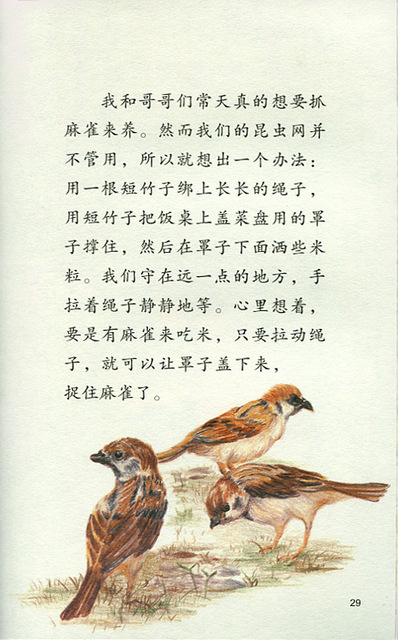 我和哥哥们常天真的想要抓
麻雀来养。然而我们的昆虫网并
不管用，所以就想出一个办法：
用一根短竹子绑上长长的绳子，
用短竹子把饭桌上盖菜盘用的罩
子撑住，然后在罩子下面洒些米
粒。我们守在远一点的地方，手
拉着绳子静静地等。心里想着，
要是有麻雀来吃米，只要拉动绳
子，就可以让罩子盖下来，
捉住麻雀了。
29